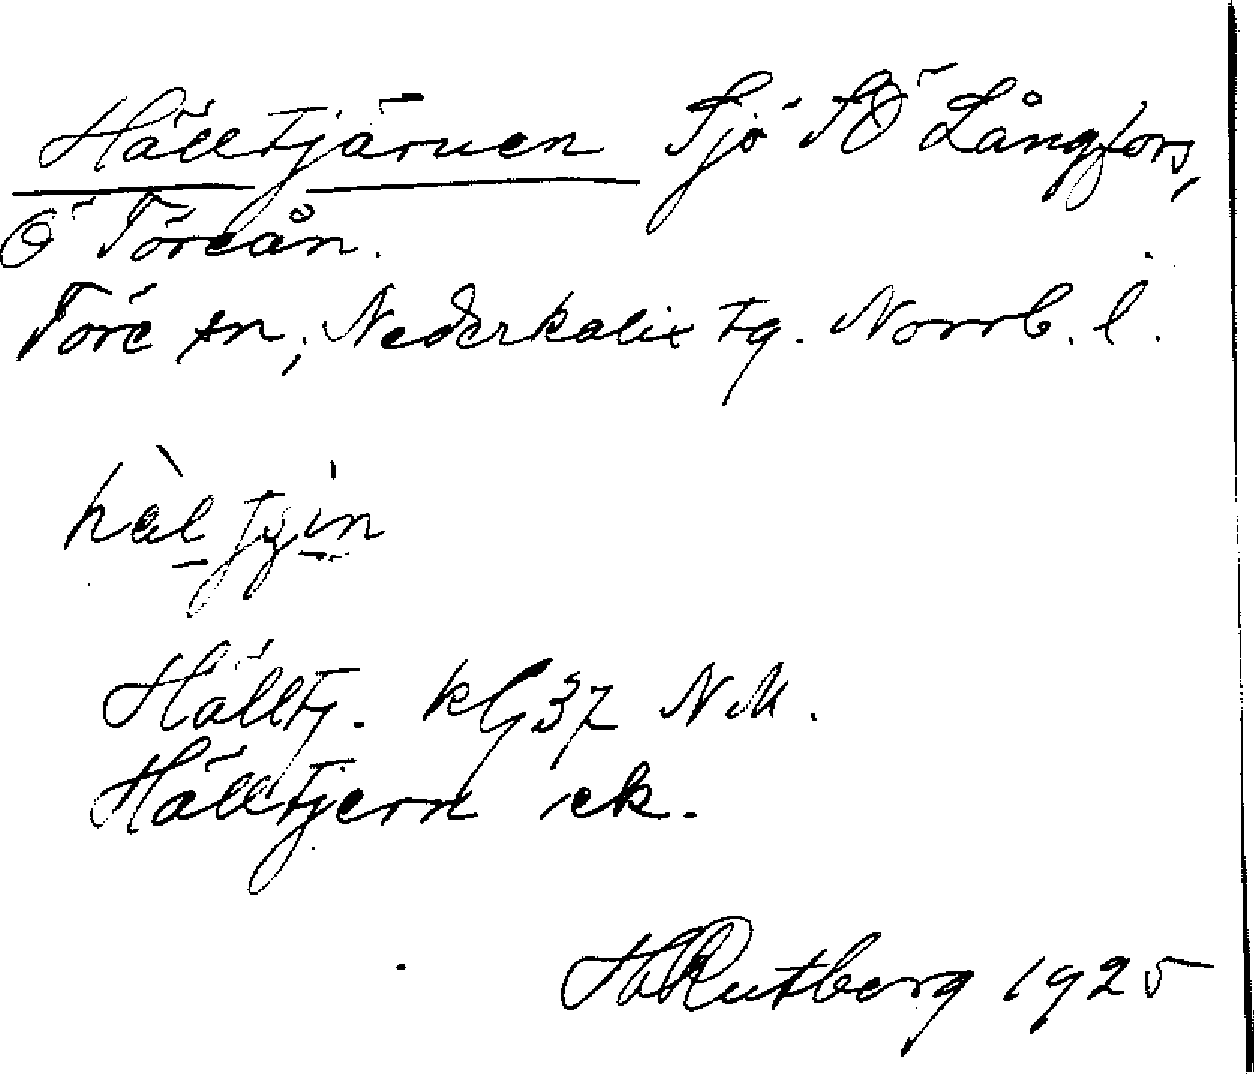 Hälltjärnen Sjö SÖ Långfors,
Ö Töreån.
Töre sn, Nederkalix tg. Norrb. l.
Hälltj. kG37 N.M.
Hälltjern ek.
H Rutberg 1925